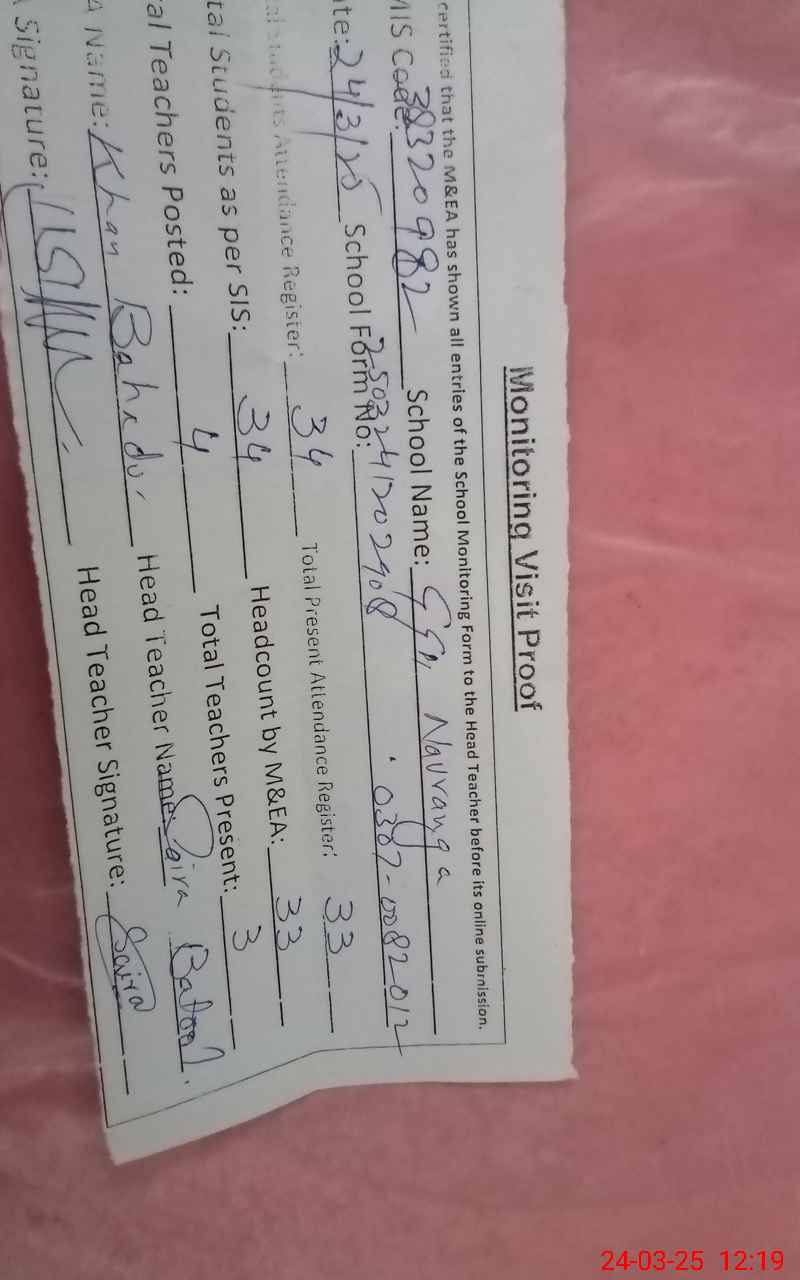 Monitoring Visit Proof
certified that the M&EA has shown all entries of the School Monitoring Form to the Head Teacher before its online submission.
MIS Code: 38320982 School Name: Nauranga
ate: 24/3/25 School Form No: 0307-0082012
al Students Attendance Register: 34 Total Present Attendance Register: 33
tal Students as per SIS: 34 Headcount by M&EA: 33
al Teachers Posted: 4 Total Teachers Present: 3
A Name: Khan Bahadur Head Teacher Name: Saira Batool.
Signature: Head Teacher Signature: Saira
24-03-25 12:19